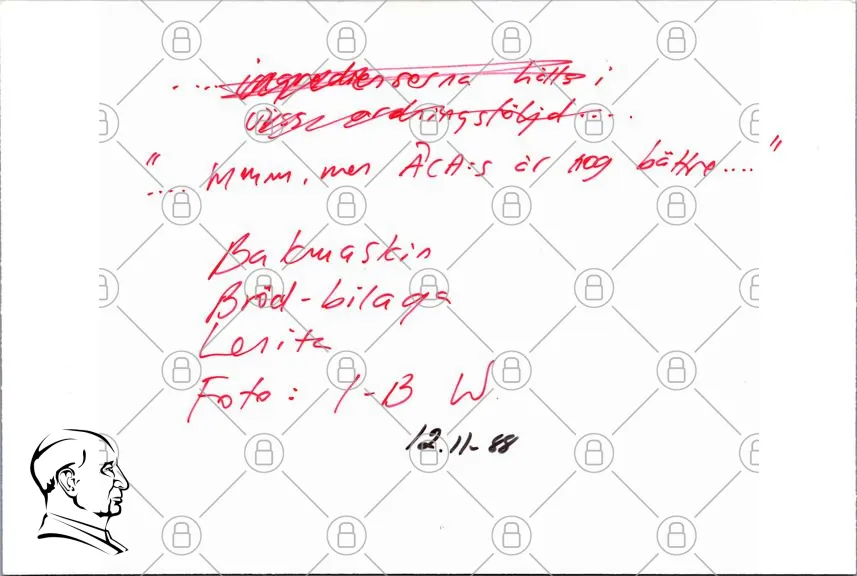 .... ingredienserna hälls i
viss ordningsföljd.....
".... Mmm, men ÅCA:s är nog bättre...."
Bakmaskin
Bröd-bilaga
Lenita
Foto: I-B W
12.11-88